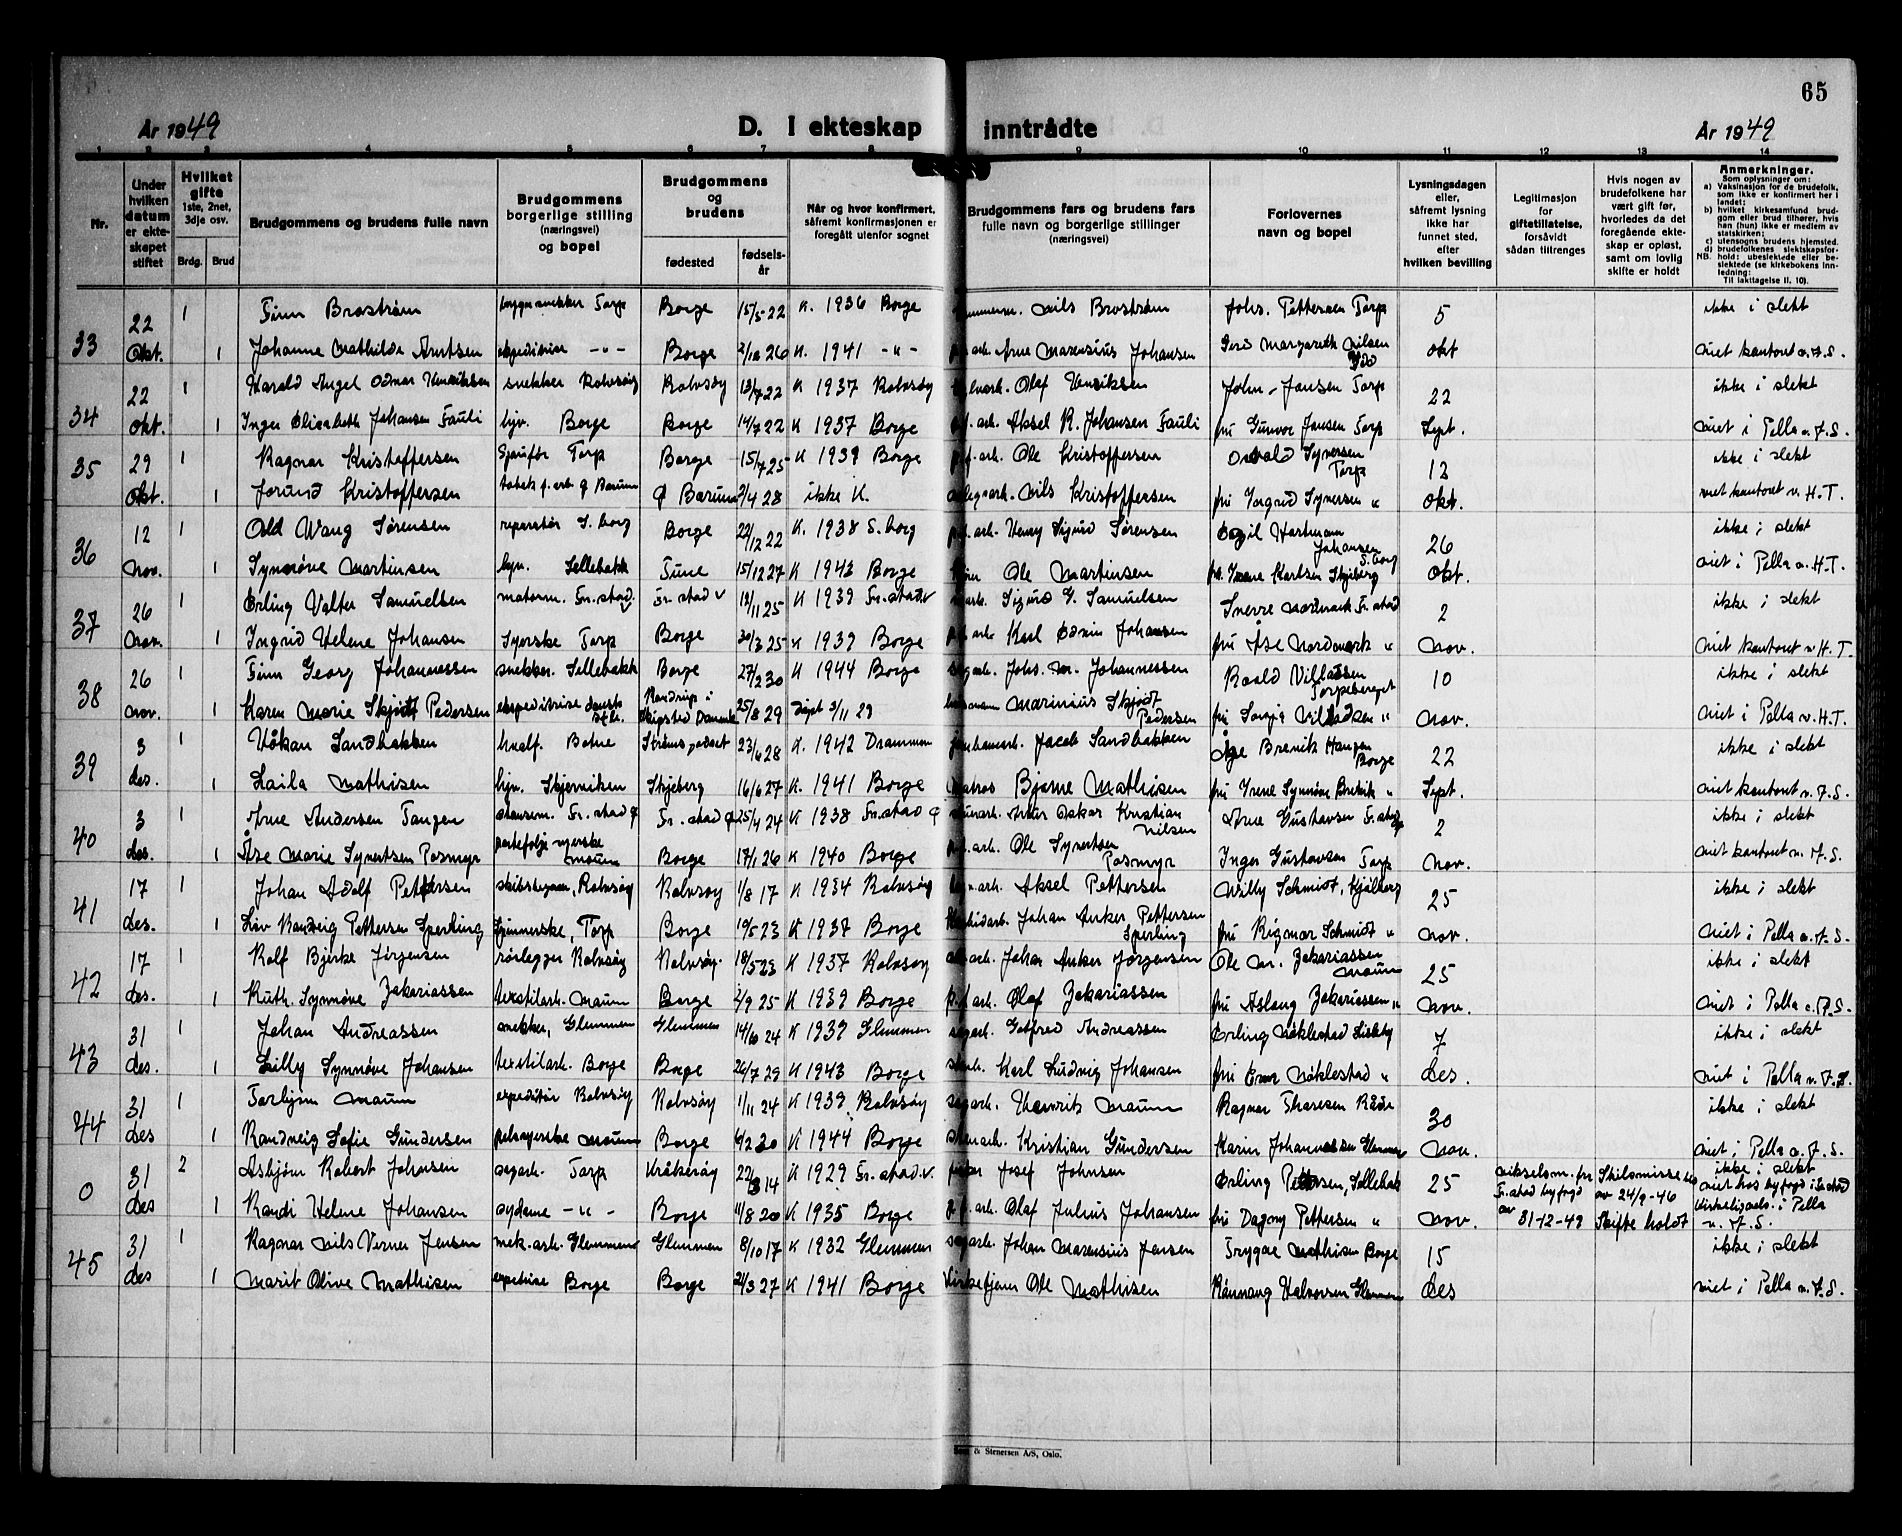 65
År 1949
D. I ekteskap inntrådte
År 1949
1 2 3 4 5 6 7 8 9 10 11 12 13 14
Nr.
Under hvilken datum er ekteskapet stiftet
Hvilket gifte 1ste, 2net, 3dje osv.
Brdg. Brud
Brudgommens og brudens fulle navn
Brudgommens borgerlige stilling (næringsvei) og bopel
Brudgommens og brudens
fødested
fødselsår
Når og hvor konfirmert, såfremt konfirmasjonen er foregått utenfor sognet
Brudgommens fars og brudens fars fulle navn og borgerlige stillinger (næringsvei)
Forlovernes navn og bopel
Lysningsdagen eller, såfremt lysning ikke har funnet sted, efter hvilken bevilling
Legitimasjon for giftetillatelse, forsåvidt sådan tiltrenges
Hvis nogen av brudefolkene har vært gift før, hvorledes da det foregående ekteskap er opløst, samt om lovlig skifte er holdt
Anmerkninger.
Som oplysninger om:
a) Vaksinasjon for de brudefolk, som ikke er konfirmert her i landet;
b) hvilket kirkesamfund brudgom eller brud tilhører, hvis han (hun) ikke er medlem av statskirken;
c) utensogns brudens hjemsted.
d) brudefolkenes slektskapsforhold: ubeslektede eller beslektede (se kirkebokens innledning:
NB. Til iakttagelse II. 10).
33 22 Okt. 1 Finn Brostrøm Torp Borge 15/5 22 K. 1936 Borge Nils Brostrøm Johs. Pettersen Torp 5 okt ikke i slekt
1 Johanne Mathilde Arntsen -"- Borge 2/12 26 K. 1941 -"- Arne Marensius Johansen Margareth Nilsen viet kontoret v. J.S.
34 22 okt. 1 Harald Angel Odmar Henriksen snekker Rolvsøy Rolvsøy 13/7 22 K 1937 Rolvsøy Olaf Henriksen John Jansen Torp 22 Sept. ikke i slekt
1 Inger Elisabeth Johansen Fauli hjv. Borge Borge 14/7 22 K 1937 Borge p.f. arb. Aksel R. Johansen Fauli fru Gunvor Jansen Torp viet i Pella v. J.S.
35 29 Okt. 1 Ragnar Kristoffersen Sjåufør Torp Borge 15/7 25 K 1939 Borge p.f. arb. Ole Kristoffersen Synersen Torp 12 okt. ikke i slekt
1 Jorund Kristoffersen Ø Bærum 2/4 28 ikke K. Nils Kristoffersen fru Ingrid Synersen " viet kontoret v. H.T.
36 12 nov. 1 Odd Wang Sørensen reparatør S.borg Borge 22/12 22 K. 1938 S.borg Henry Sigurd Sørensen Egil Hartmann Johansen S.borg 26 okt. ikke i slekt
1 Synnøve Martinsen hjv. Sellebakk Tune 15/12 27 K 1943 Borge Ole Martinsen Karlsen Skjeberg viet i Pella v. H.T.
37 26 nov. 1 Erling Valter Samuelsen Fr.stad v Fr.stad v 18/11 25 K 1939 Fr.stad.v Sigurd G. Samuelsen Sverre Nordmark Fr.stad 2 nov. ikke i slekt
1 Ingrid Helene Johansen Syerske Torp Borge 30/3 25 K 1939 Borge Karl Edvin Johansen fru Åse Nordmark " viet kontoret v H.T.
38 26 nov. 1 Finn Georg Johannessen snekker. Sellebakk Borge 27/2 30 K 1944 Borge Johs. M. Johannessen Roald Villadsen Torpeberget 10 nov. ikke i slekt
1 Karen Marie Skjødt Pedersen ekspeditrise dansk Danmark 25/8 29 døpt 3/11 29 Marinius Skjødt Pedersen fru Sonja Villadsen " viet i Pella v. H.T.
39 3 des. 1 Håkan Sandbakken Strømsgodset 23/6 28 K. 1942 Drammen Jacob Sandbakken Åge Brevik Hansen Borge 22 Sept. ikke i slekt
1 Laila Mathisen hjv. Skjærviken Skjeberg 16/6 27 K. 1941 Borge Matros Bjarne Mathisen fru Irene Synnøve Brevik " viet kontoret v. J.S.
40 3 des. 1 Arne Andersen Tangen Fr.stad Ø Fr.stad Ø 25/4 24 K 1938 Fr.stad Ø Artur Oskar Kristian Nilsen Arne Gustavsen 2 nov. ikke i slekt
1 Åse Marie Synertsen Posmyr portefølje syerske Moum Borge 17/1 26 K 1940 Borge p.f. arb. Ole Synertsen Posmyr Inger Gustavsen Torp viet kontoret v. J.S.
41 17 des. 1 Johan Adolf Pettersen Rolvsøy Rolvsøy 1/8 17 K 1934 Rolvsøy Aksel Pettersen Willy Schmidt, Kjølberg 25 nov. ikke i slekt
1 Liv Randveig Pettersen Sperling Spinnerske, Torp Borge 10/5 23 K 1937 Borge Johan Anker Pettersen Sperling fru Rigmor Schmidt " viet i Pella v. J.S.
42 17 des. 1 Rolf Bjerke Jørgensen rørlegger Rolvsøy Rolvsøy. 18/5 23 K 1937 Rolvsøy Johan Anker Jørgensen Ole M. Zakariassen Moum 25 nov. ikke i slekt
1 Ruth. Synnøve Zakariassen textilarb. Moum Borge 2/9 25 K 1939 Borge p.f. arb. Olaf Zakariassen fru Aslaug Zakariassen " viet i Pella v. J.S.
43 31 des. 1 Johan Andreassen snekker, Glemmen Glemmen 14/6 24 K 1939 Glemmen Gotfred Andreassen Erling Nøklestad 7 des. ikke i slekt
1 Lilly Synnøve Johansen textilarb. Borge Borge 26/7 29 K 1943 Borge Karl Ludvig Johansen fru Nøklestad " viet i Pella v. J.S.
44 31 des 1 Torbjørn Moum expeditør Rolvsøy Rolvsøy 1/11 24 K 1939 Rolvsøy Henrik Moum Ragnar Thoresen Råde 30 nov. ikke i slekt
1 Randveig Sofie Gundersen Moum Borge 6/2 20 K 1944 Borge Kristian Gundersen Karin Johannessen Glemmen viet i Pella v. J.S.
0 31 des 2 Asbjørn Robert Johnsen sagarb. Torp Kråkerøy 22/3 14 K 1929 Fr.stad.v. Josef Johnsen Erling Pettersen, Sellebak 25 nov. vikselsm. fra Fr.stad byfogd av 31-12-49 Skilsmisse av 24/9-46 Skifte holdt ikke i slekt
1 Randi Helene Johansen sydame -"- Borge 11/8 20 K 1935 Borge p.f. arb. Olaf Julius Johansen fru Dagny Pettersen " viet hos byfogd i Fr.stad i Pella v. J.S.
45 31 des 1 Ragnar Nils Verner Jensen mek.arb. Glemmen Glemmen 8/10 17 K 1932 Glemmen sagarb. Johan Marensius Jensen Trygve Mathisen Borge 15 des ikke i slekt
1 Marit Olive Mathisen Borge Borge 21/3 27 K 1941 Borge Kirketjener Ole Mathisen Rannaug Halvorsen Glemmen viet i Pella v. J.S.
& Stenersen A/S, Oslo.